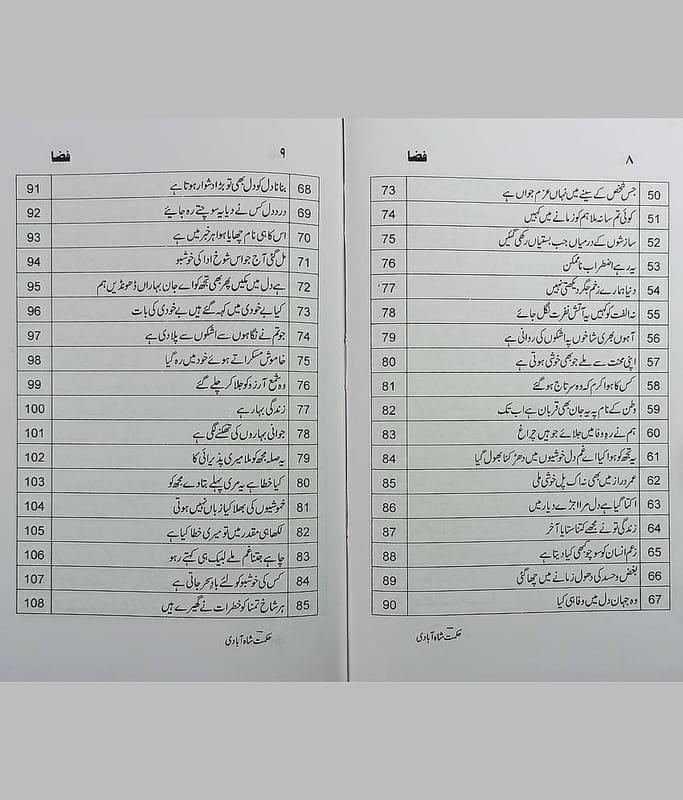 ۸ فضا
50 جس شخص کے سینے میں نہاں عزم جواں ہے 73
51 کوئی تم سا نہ ملا ہم کو زمانے میں کہیں 74
52 سازشوں کے درمیاں جب بستیاں رکھی گئیں 75
53 یہ رہے اضطراب ناممکن 76
54 دنیا ہمارے زخم جگر دیکھتی نہیں 77
55 نہ الفت کو کہیں یہ آتش نفرت نگل جائے 78
56 آہوں بھری شاخوں پہ اشکوں کی روانی ہے 79
57 اپنی محنت سے ملے جو بھی خوشی ہوتی ہے 80
58 کس کا ہوا کرم کہ وہ سرتاج ہو گئے 81
59 وطن کے نام پہ یہ جان بھی قربان ہے اب تک 82
60 ہم نے رہ وفا میں جلائے جو ہیں چراغ 83
61 یہ تجھ کو ہوا کیا اے غم دل خوشیوں میں دھڑکنا بھول گیا 84
62 عمر دراز میں بھی نہ اک پل خوشی ملی 85
63 اکتا گیا ہے دل مرا اجڑے دیار میں 86
64 زندگی تو نے مجھے کتنا ستایا آخر 87
65 زعم انسان کو سوچو کبھی کیا دیتا ہے 88
66 بغض و حسد کی دھول زمانے میں چھا گئی 89
67 وہ جہان دل میں وفا ہی کیا 90
حکمت شاہ آبادی
۹ فضا
68 بنانا دل کو دل بھی تو بڑا دشوار ہوتا ہے 91
69 درد دل کس نے دیا یہ سوچتے رہ جایئے 92
70 اس کا ہی نام چھایا ہوا ہر خبر میں ہے 93
71 مل گئی آج جو اس شوخ ادا کی خوشبو 94
72 ہے دل میں مکیں پھر بھی تجھ کو اے جان بہاراں ڈھونڈیں ہم 95
73 کیا بے خودی میں کہہ گئے ہیں بے خودی کی بات 96
74 جو تم نے نگاہوں سے اشکوں سے پلا دی ہے 97
75 خاموش مسکراتے ہوئے خود میں رہ گیا 98
76 وہ شمع آرزو کو جلا کر چلے گئے 99
77 زندگی بہار ہے 100
78 جوانی بہاروں کی تھکنے لگی ہے 101
79 یہ صلہ مجھ کو ملا میری پذیرائی کا 102
80 کیا خطا ہے یہ مری پہلے بتا دے مجھ کو 103
81 خموشیوں کی بھلا کیا زباں نہیں ہوتی 104
82 لکھا ہی مقدر میں تو میری خطا کیا ہے 105
83 چاہے جتنا غم ملے لبیک ہی کہتے رہو 106
84 کس کی خوشبو کو لئے باد سحر جاتی ہے 107
85 ہر شاخ تمنا کو خطرات نے گھیرے ہیں 108
حکمت شاہ آبادی